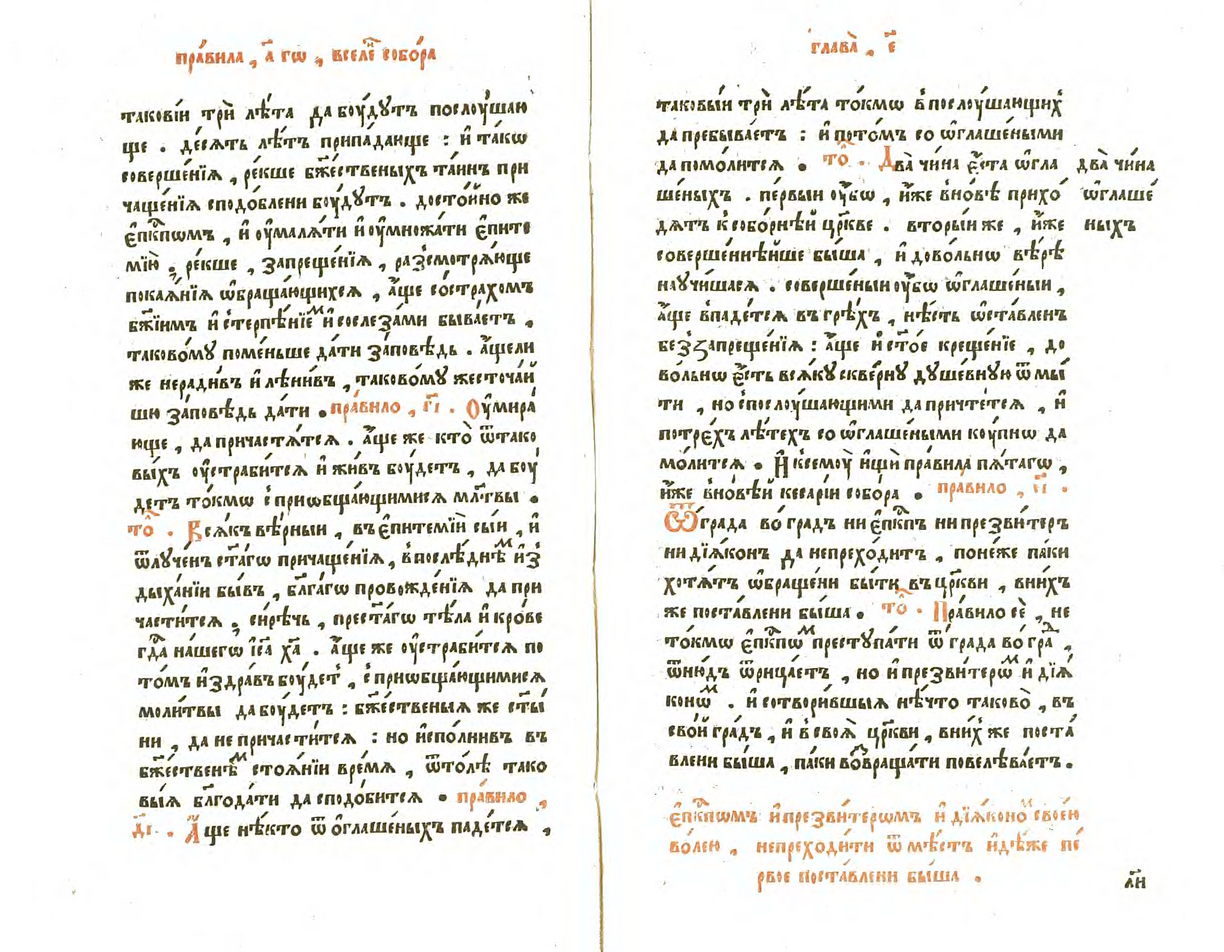 пра́вила , а҃ гѡ , вселе́ⷩ҇ собо́ра
такові́и трѝ лѣ́та да боу́дутъ послоу́шаю
ще . де́сѧть лѣ́тъ припа́дающе : и҆ та́кѡ
соверше́нїѧ , ре́кше бж҃ественыхъ та́инъ при
чаще́нїѧ сподо́блени боу́дутъ . досто́йно же
є҆пⷭ҇кпѡмъ , и҆ оу҆малѧ́ти и҆ оу҆множа́ти є҆пите
мі́ю . ре́кше , запреще́нїѧ , разсмотрѧ́юще
покаѧ́нїѧ ѡ҆браща́ющихсѧ , а҆́ще со́страхомъ
бж҃їимъ и҆ стерпѣ́нїеⷨ и҆ сослеза́ми быва́етъ ,
таково́му поме́ньше да́ти за́повѣдь . а҆́щели
же неради́въ и҆ лѣни́въ , таково́му жесточа́й
шю за́повѣдь да́ти . пра́вило , г҃і . Оу҆мира́
юще , да причастѧ́тсѧ . а҆́ще же кто̀ ѿтако
вы́хъ оу҆страби́тсѧ и҆ жи́въ боу́детъ , да боу́
детъ то́кмѡ с̾приѡбща́ющимисѧ мл҃твы .
то́ⷧ . Всѧ́къ вѣ́рныи , въ є҆питемі́й сы́и , и҆
ѿлу́ченъ ст҃а́гѡ причаще́нїѧ , в̾послѣ́днѣⷨ и҆з̾
дыха́нїи бы́въ , бл҃га́гѡ провожде́нїѧ да при
части́тсѧ . си́рѣчь , прест҃а́гѡ тѣ́ла и҆ кро́ве
гдⷭ҇а на́шегѡ і҆с҃а хⷭ҇а . а҆́ще же оу҆страби́тсѧ по
то́мъ и҆ здра́въ боу́детⸯ , с̾приѡбща́ющимисѧ
моли́твы да боу́детъ : бж҃ественыѧ же ст҃ы́
ни , да не причасти́тсѧ : но и҆спо́лнивъ въ
бж҃ественѣⷨ стоѧ́нїи вре́мѧ , ѿто́лѣ тако
вы́ѧ бл҃года́ти да сподо́битсѧ . пра́вило ,
д҃і . А҆́ще нѣ́кто ѿ о҆глаше́ныхъ паде́тсѧ ,
глава̀ , є҃
таковы́и трѝ лѣ́та то́кмѡ в̾послоу́шающихⸯ
да пребыва́етъ : и҆ пото́мъ со ѡ҆глаше́ными
да помо́литсѧ . то́ⷧ . Два̀ чи́на є҆́ста ѡ҆гла
ше́ныхъ . пе́рвыи оу҆́бѡ , и҆́же вно́вѣ прихо́
дѧтъ к̾собо́рнѣй цр҃кве . вторы́и же , и҆́же
соверше́ннѣйше бы́ша , и҆ дово́льнѡ вѣ́рѣ
научи́шасѧ . соверше́ныи оу҆́бѡ ѡ҆глаше́ныи ,
а҆́ще впаде́тсѧ въ грѣ́хъ , нѣ́сть ѡ҆ста́вленъ
без̾запреще́нїѧ : а҆́ще и҆ ст҃о́е креще́нїе , до
во́льнѡ є҆́сть всѧ́ку скве́рну душе́вную ѿмы́
ти , но с̾послоу́шающими да причте́тсѧ , и҆
потре́хъ лѣ́техъ со ѡ҆глаше́ными коу́пнѡ да
мо́литсѧ . И҆ ксемоу̀ и҆щѝ пра́вила пѧ́тагѡ ,
и҆́же вно́вѣй кесарі́и собо́ра . пра́вило , є҃і .
Ѿ гра́да во́ градъ ни є҆пⷭ҇кпъ ни презви́теръ
ни дїѧ́конъ да непрехо́дитъ , поне́же па́ки
хотѧ́тъ ѡ҆браще́ни бы́ти въ цр҃кви , вни́хъ
же поста́влени бы́ша . то́ⷧ . Пра́вило сѐ , не
то́кмѡ є҆пⷭ҇кпѡⷨ преступа́ти ѿ гра́да во́ граⷣ ,
ѿню́дъ ѿрица́етъ , но и҆ презви́терѡⷨ и҆ дїѧ́
конѡⷨ . и҆ сотвори́вшыѧ нѣ́что таково̀ , въ
сво́й гра́дъ , и҆ в своѧ̀ цр҃кви , вни́х̾ же поста́
влени бы́ша , па́ки воⷥвраща́ти повелѣва́етъ .
два̀ чи́на
ѡ҆глаше́
ныхъ
є҆пⷭ҇кпѡмъ и҆ презви́терѡмъ и҆ дїѧ́коноⷨ свое́ю
во́лею , непреходи́ти ѿ мѣ́стъ и҆дѣ́же пе́
рвое поста́влени бы́ша .
л҃и